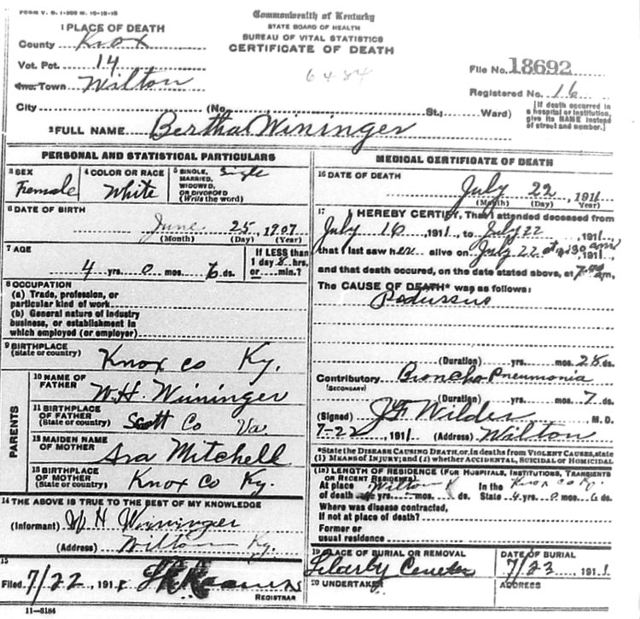 FORM V. S. 1-200 M. 10-15-15
Commonwealth of Kentucky
STATE BOARD OF HEALTH
BUREAU OF VITAL STATISTICS
CERTIFICATE OF DEATH
1 PLACE OF DEATH
County Knox
Vot. Pct. 14
Inc. Town Wilton
6484
File No. 18692
Registered No. 16
City (No. St., Ward)
[If death occurred in a hospital or institution, give its NAME instead of street and number.]
2 FULL NAME Bertha Wininger
PERSONAL AND STATISTICAL PARTICULARS
3 SEX
Female
4 COLOR OR RACE
White
5 SINGLE, MARRIED, WIDOWED, OR DIVORCED (Write the word)
Single
6 DATE OF BIRTH
June 25, 1907
(Month) (Day) (Year)
7 AGE
4 yrs. 0 mos. 6 ds.
If LESS than 1 day hrs. or min.?
8 OCCUPATION
(a) Trade, profession, or particular kind of work
(b) General nature of industry business, or establishment in which employed (or employer)
9 BIRTHPLACE
(State or country) Knox co Ky.
PARENTS
10 NAME OF FATHER W.H. Wininger
11 BIRTHPLACE OF FATHER
(State or country) Scott Co Va
12 MAIDEN NAME OF MOTHER Ara Mitchell
13 BIRTHPLACE OF MOTHER
(State or country) Knox Co Ky.
14 THE ABOVE IS TRUE TO THE BEST OF MY KNOWLEDGE
(Informant) W H Wininger
(Address) Wilton Ky.
15
Filed 7/22 191
REGISTRAR
11-5184
MEDICAL CERTIFICATE OF DEATH
16 DATE OF DEATH
July 22, 1911
(Month) (Day) (Year)
17 I HEREBY CERTIFY, That I attended deceased from
July 16, 1911, to July 22, 1911,
that I last saw her alive on July 22 at 30 am 1911,
and that death occured, on the date stated above, at m.
The CAUSE OF DEATH* was as follows:
Pedussus
(Duration) yrs. mos. 28 ds.
Contributory Broncho Pneumonia
(SECONDARY)
(Duration) yrs. mos. 7 ds.
(Signed) J F Wilder M. D.
7-22, 1911 (Address) Wilton
*State the DISEASE CAUSING DEATH, or, in deaths from VIOLENT CAUSES, state
(1) MEANS OF INJURY; and (2) whether ACCIDENTAL, SUICIDAL or HOMICIDAL
18 LENGTH OF RESIDENCE (FOR HOSPITALS, INSTITUTIONS, TRANSIENTS OR RECENT RESIDENTS)
At place of death yrs. mos. ds. Wilton In the State 4 yrs. 0 mos. 6 ds. Knox co Ky.
Where was disease contracted,
if not at place of death?
Former or
usual residence
19 PLACE OF BURIAL OR REMOVAL
Liberty Cemeter
DATE OF BURIAL
7/23 1911
20 UNDERTAKER
ADDRESS